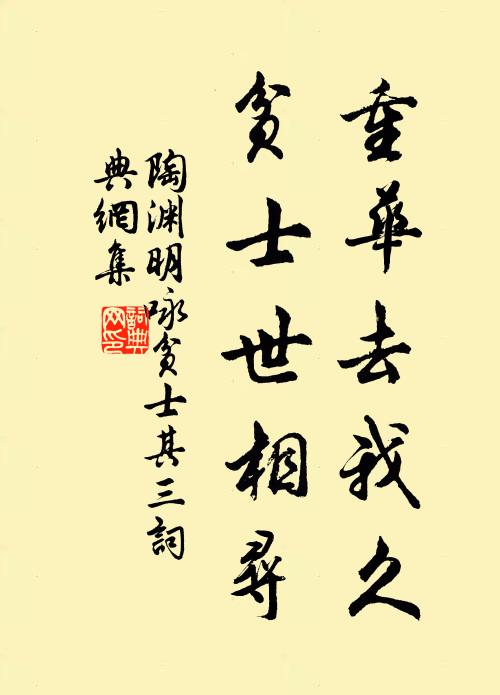 重華去我久
貧士世相尋
陶渊明咏貧士其三詞
典網集
詞典
网印